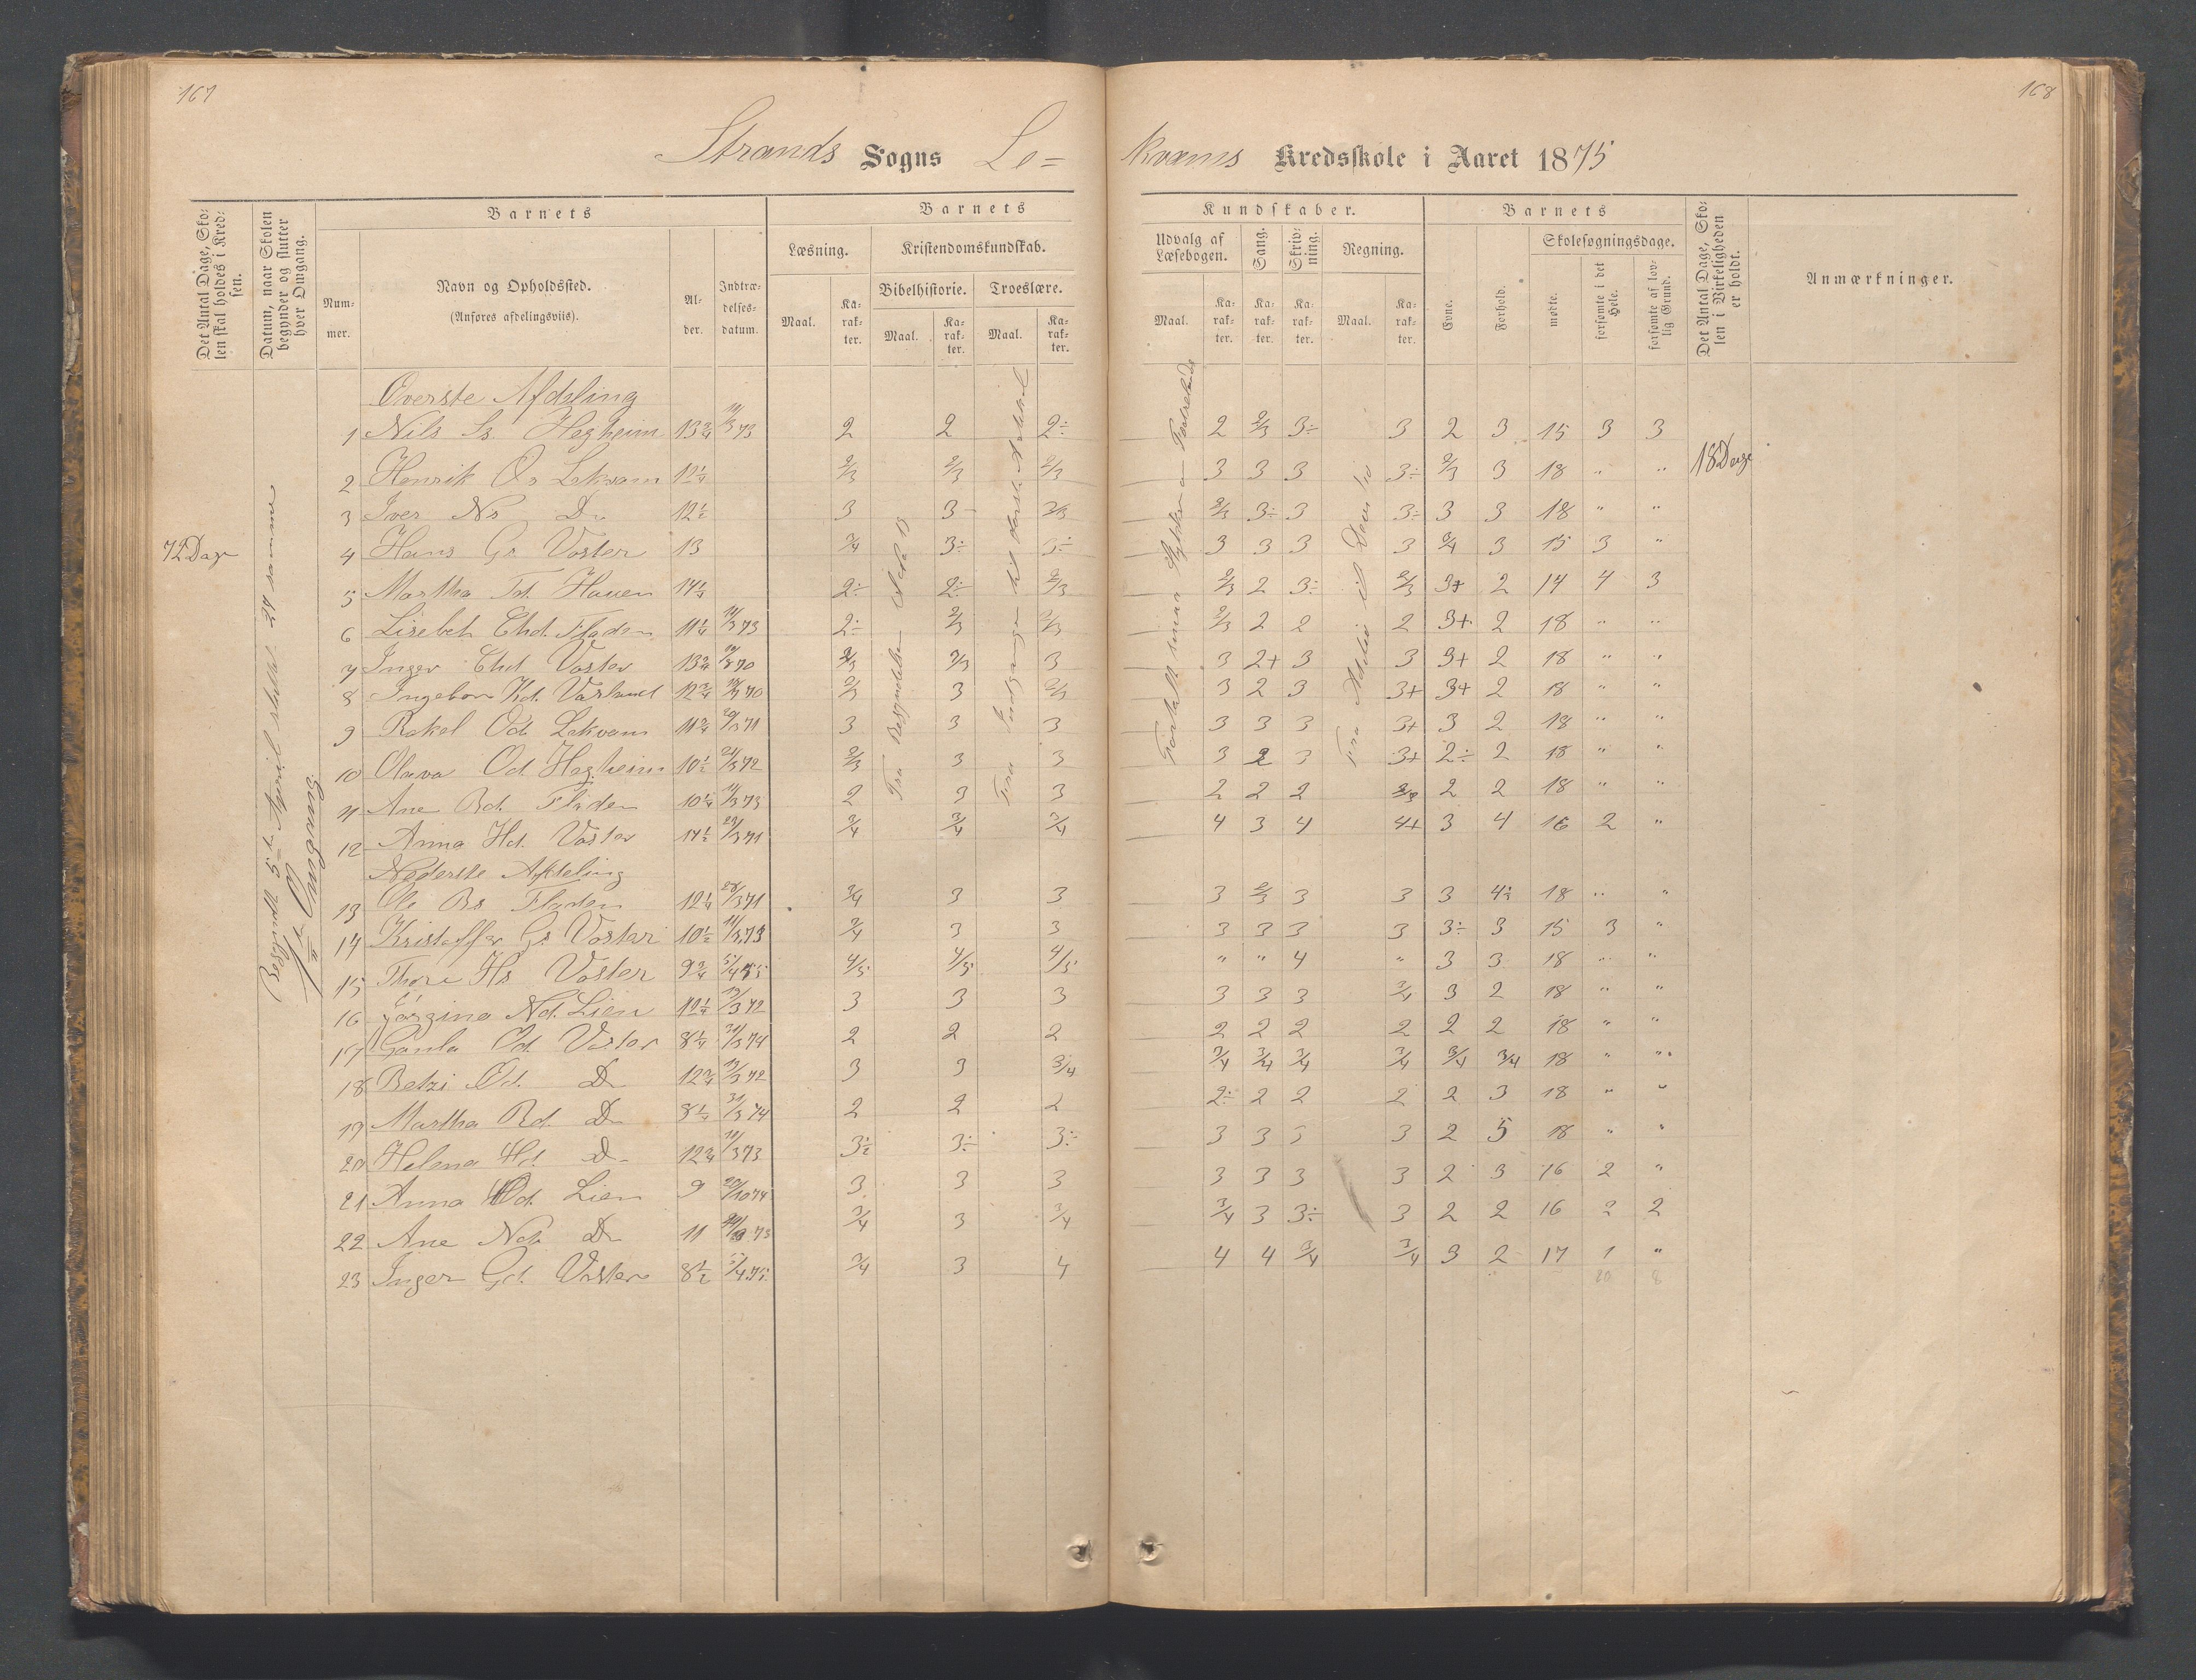 167
168
Strands Sogns Le=
kvams Kredsskole i Aaret 1875
Det Antal Dage, Skolen skal holdes i Kredsen.
Datum, naar Skolen begynder og slutter hver Omgang.
Barnets
Nummer.
Navn og Opholdssted.
(Anføres afdelingsviis).
Alder.
Indtrædelsesdatum.
Barnets
Kundskaber.
Læsning.
Maal.
Karakter.
Kristendomskundskab.
Bibelhistorie.
Maal.
Karakter.
Troeslære.
Maal.
Karakter.
Udvalg af Læsebogen.
Maal.
Karakter.
Sang.
Karakter.
Skrivning.
Karakter.
Regning.
Maal.
Karakter.
Barnets
Evne.
Forhold.
Skolesøgningsdage.
mødte.
forsømte i det Hele.
forsømte af lovlig Grund.
Det Antal Dage, Skolen i Virkeligheden er holdt.
Anmærkninger.
72 Dage
18 Dage
Øverste Afdeling
1 Nils Hegheim 13 3/4 11/3 73 2 2 2÷ 2 2/3 3÷ 3 2 3 15 3 3
2 Henrik Os Lekvam 12 1/4 2/3 2/3 2/3 3 3 3 3÷ 2/3 3 18 " "
3 Iver Ns Do 12 1/2 3 3- 2/3 2/3 3÷ 3 3÷ 3 3 18 " "
4 Hans Gs Voster 13 3/4 3÷ 3÷ 3 3 3 3 3/4 3 15 3 "
5 Martha Td. Hauen 14 1/4 2÷ 2÷ 2/3 2/3 2 3÷ 2/3 3+ 2 14 4 3
6 Lisebet Fladen 11 1/4 11/3 73 2÷ 2/3 2/3 2/3 2 2 2 3+ 2 18 " "
7 Inger Voster 13 3/4 2/3 2/3 3 3 2+ 3 3 3+ 2 18 " "
8 Ingebor Kd. 12 3/4 2/3 3 2/3 3 2 3 3+ 3+ 2 18 " "
9 Rakel Od. Lekvam 11 3/4 3 3 3 3 3 3 3+ 3 2 18 " "
10 Olava Od. Hegheim 10 1/2 21/3 72 2/3 3 3 3 2 3 3+ 2÷ 2 18 " "
11 Ane Bd. Fladen 10 1/4 11/3 73 2 3 3 2 2 2 2/3 2 2 18 " "
12 Anna Hd. Voster 11 1/2 3/4 3/4 3/4 4 3 4 4+ 3 4 16 2 "
Nederste Afdeling
13 Ole Bs Fladen 12 1/4 28/3 71 3/4 3 3 3 2/3 3 3 3 4÷ 18 " "
14 Kristoffer Gs Voster 10 1/2 11/3 73 3/4 3 3 3 3 3 3 3÷ 3 15 3 "
15 Thore Hs Voster 9 3/4 5/4 75 4/5 4/5 4/5 " " 4 " 3 3 18 " "
16 Jørgine Nd. Lien 3 3 3 3 3 3 3/4 3 2 18 " "
17 Gunla Od. Voster 8 1/4 31/3 74 2 2 2 2 2 2 2 2 2 18 " "
18 Betzi Od. Do 12 3/4 3 3 3/4 3/4 3/4 3/4 3/4 3/4 3/4 18 " "
19 Martha Bd. Do 8 1/4 31/3 74 2 2 2 2÷ 2 2 2 2 3 18 " "
20 Helena Hd. Do 12 3/4 11/3 73 3÷ 3÷ 3÷ 3 3 3 3 2 5 18 " "
21 Anna Od. Lien 9 20/10 74 3 3 3 3 3 3 3 2 3 16 2 "
22 Ane Nd. Do 11 3/4 3 3/4 3/4 3 3÷ 3 2 2 16 2 2
23 Inger Gd. Voster 8 1/2 5/4 75 3/4 3 4 4 4 3/4 3/4 3 2 17 1 "
20 8
Fra Begyndelsen
Fra Indgangen til
Fra Addition til